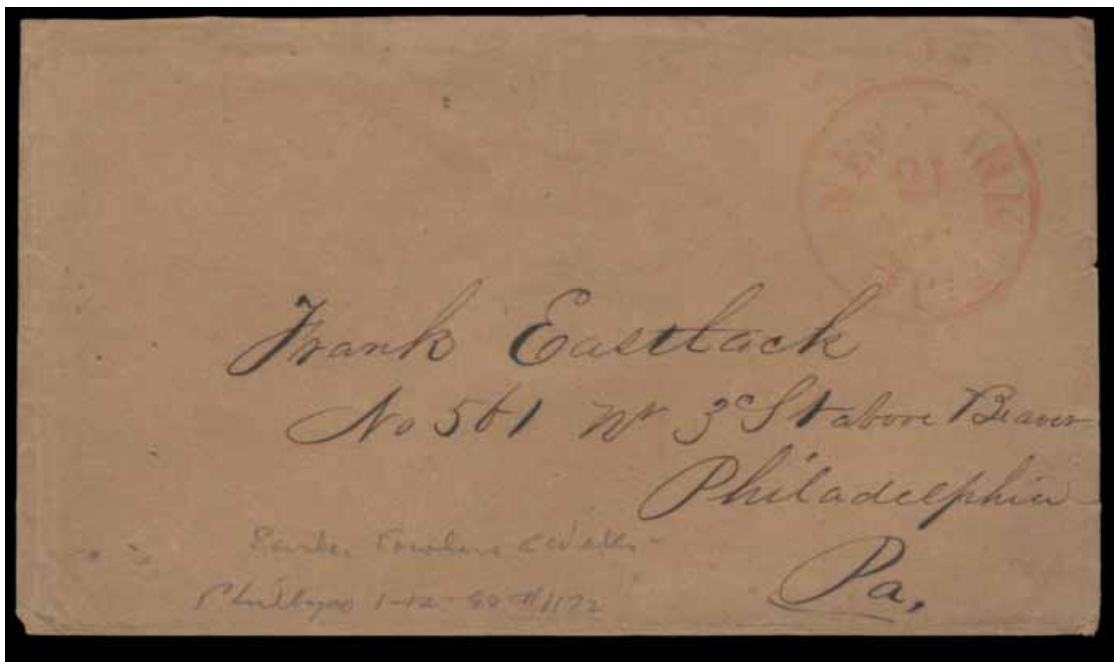 NEW YORK
21
Frank Eastlack
No 561 Nr 3d St above Beaver
Philadelphia
Pa.
Phillips 1-12-80 #1172